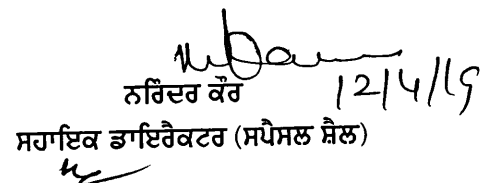 12/4/19
ਨਰਿੰਦਰ ਕੌਰ
ਸਹਾਇਕ ਡਾਇਰੈਕਟਰ (ਸਪੈਸਲ ਸ਼ੈਲ)